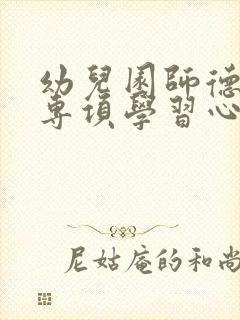 幼兒園師德
專項學習心
尼姑庵的和尚